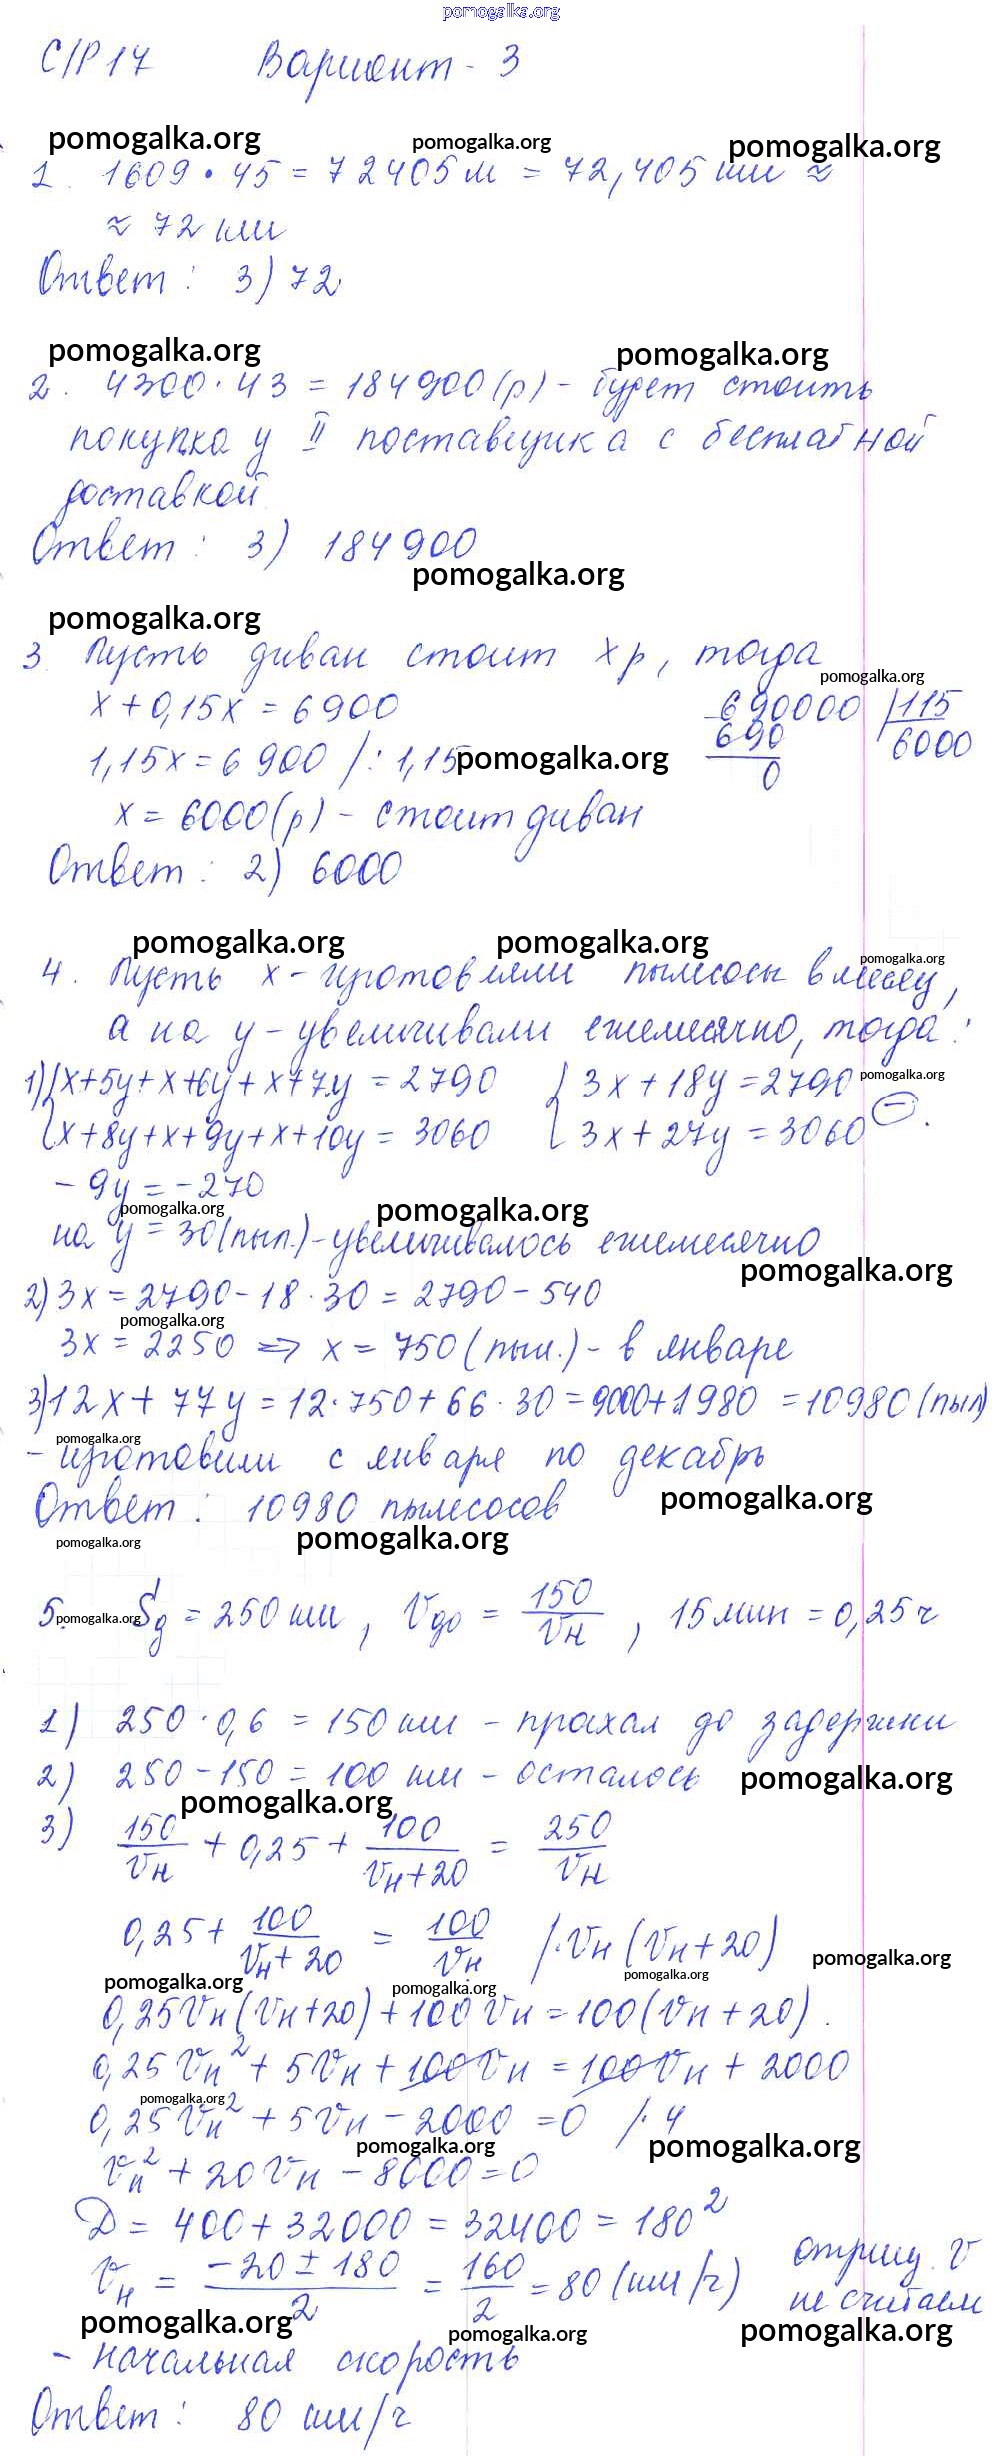 pomogalka.org
С/Р 17 Вариант - 3
pomogalka.org pomogalka.org pomogalka.org
1. 1609 · 45 = 72405 м = 72,405 км ≈
≈ 72 км
Ответ: 3) 72
pomogalka.org pomogalka.org
2. 4300 · 43 = 184900 (р) - будет стоить
покупка у II поставщика с бесплатной
доставкой
Ответ: 3) 184900
pomogalka.org
pomogalka.org
3. Пусть диван стоит x р, тогда
pomogalka.org
x + 0,15x = 6900 690000 | 115
1,15x = 6900 /: 1,15 690 6000
pomogalka.org
0
x = 6000 (р) - стоит диван
Ответ: 2) 6000
pomogalka.org pomogalka.org pomogalka.org
4. Пусть x - изготовляли пылесосы в месяц,
а на y - увеличивали ежемесячно, тогда:
1) { x+5y+x+6y+x+7y = 2790 { 3x + 18y = 2790
pomogalka.org
{ x+8y+x+9y+x+10y = 3060 { 3x + 27y = 3060 (-)
- 9y = - 270
pomogalka.org pomogalka.org
на y = 30 (пыл.) - увеличивалось ежемесячно
pomogalka.org
2) 3x = 2790 - 18 · 30 = 2790 - 540
pomogalka.org
3x = 2250 => x = 750 (пыл.) - в январе
3) 12x + 77y = 12 · 750 + 66 · 30 = 9000 + 1980 = 10980 (пыл)
pomogalka.org
- изготовили с января по декабрь
pomogalka.org
Ответ: 10980 пылесосов
pomogalka.org pomogalka.org
5. pomogalka.org Sд = 250 км, Vдо = 150/Vн, 15 мин = 0,25 ч
1) 250 · 0,6 = 150 км - проехал до задержки
2) 250 - 150 = 100 км - осталось
pomogalka.org
pomogalka.org
3) 150/Vн + 0,25 + 100/(Vн+20) = 250/Vн
0,25 + 100/(Vн+20) = 100/Vн /· Vн (Vн + 20)
pomogalka.org pomogalka.org pomogalka.org pomogalka.org
0,25Vн (Vн+20) + 100Vн = 100 (Vн + 20)
0,25Vн² + 5Vн + 100Vн = 100Vн + 2000
pomogalka.org
0,25Vн² + 5Vн - 2000 = 0 /· 4
pomogalka.org pomogalka.org
Vн² + 20Vн - 8000 = 0
D = 400 + 32000 = 32400 = 180²
Vн = (-20 ± 180)/2 = 160/2 = 80 (км/ч) отриц. V
не считаем
pomogalka.org pomogalka.org pomogalka.org
- начальная скорость
Ответ: 80 км/ч